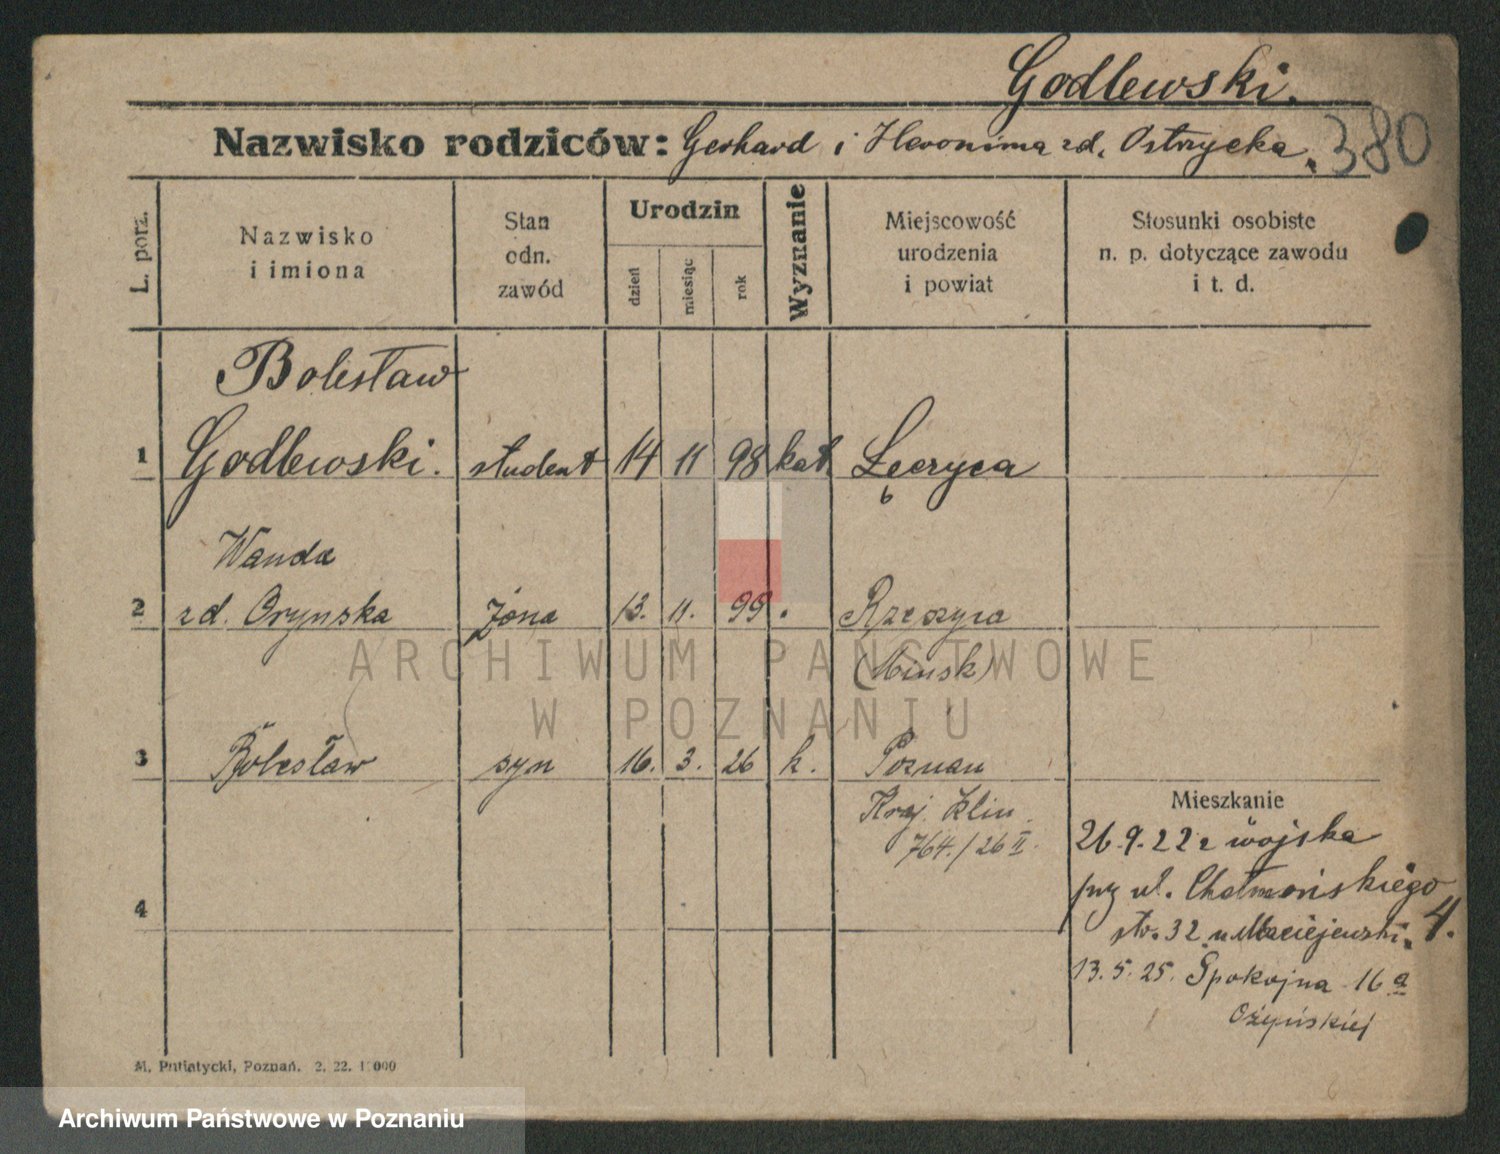 Godlewski.
Nazwisko rodziców: Gerhard i Heronima rd. Ostrzycka. 380
L. porz.
Nazwisko i imiona
Stan odn. zawód
Urodzin
dzień miesiąc rok
Wyznanie
Miejscowość urodzenia i powiat
Stosunki osobiste n. p. dotyczące zawodu i t. d.
Bolesław
1 Godlewski. student 14 11 98 kat. Łęczyca
Wanda
2 rd. Orynska żona 13. 11. 99 Rzeczyca
(Minsk)
3 Bolesław syn 16. 3. 26 k. Poznan
Kraj. Klin.
764./26 II.
4
Mieszkanie
26.9.22 z wojska
przy ul. Chełmońskiego
str. 32 u Maciejewski. 4.
13.5.25. Spokojna 16 a
Ożyńskiej
M. Putiatycki, Poznań. 2. 22. 1 000
ARCHIWUM PAŃSTWOWE
W POZNANIU
Archiwum Państwowe w Poznaniu